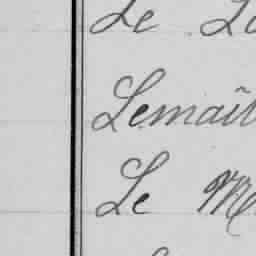 Le
Lemaît
Le M